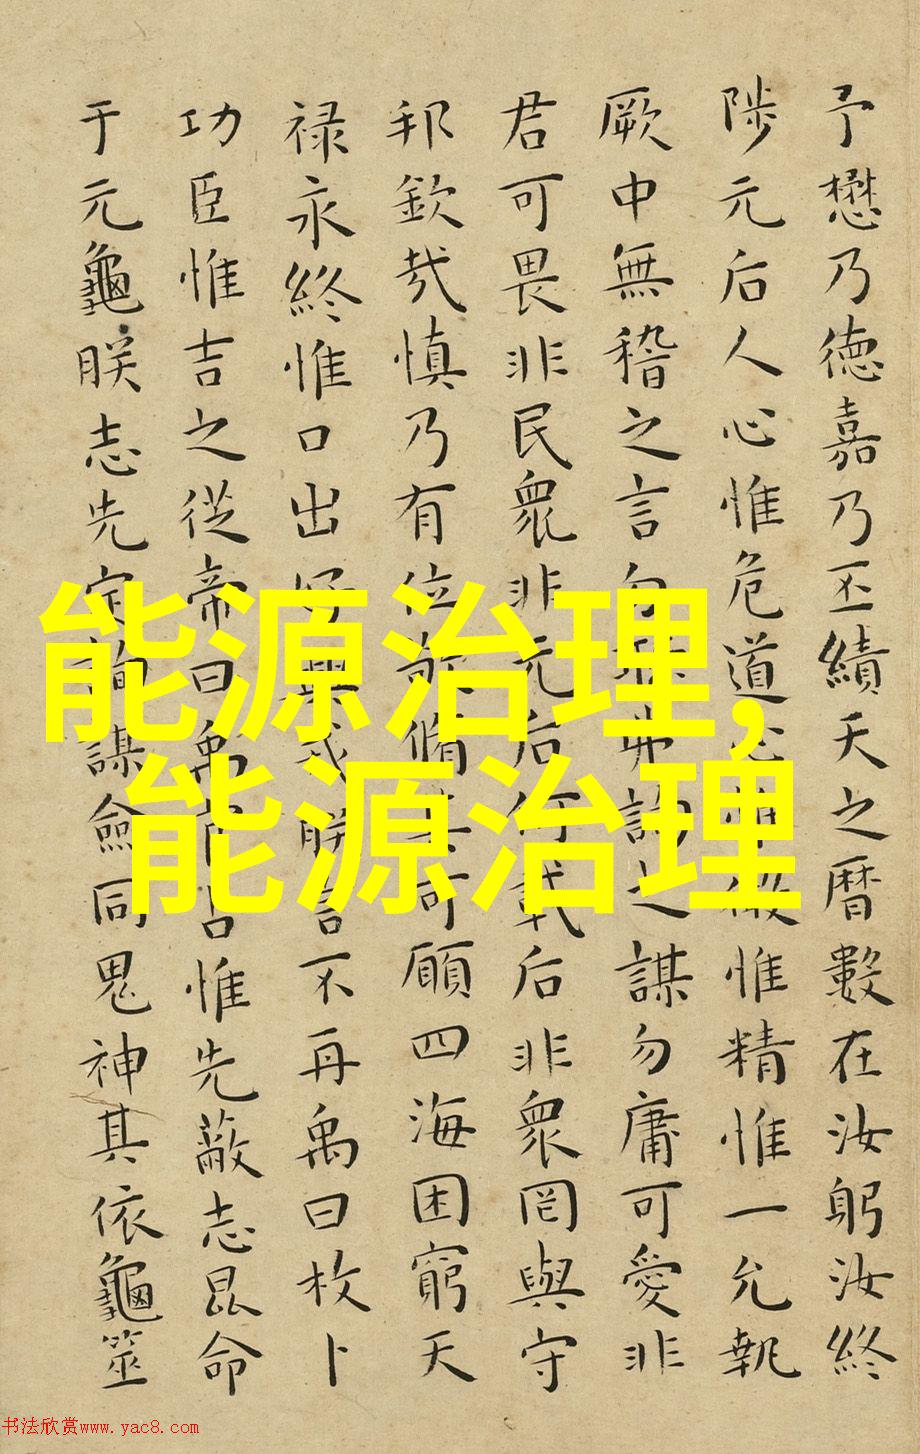 予懋乃德嘉乃丕績天之曆數在汝躬汝終
陟元后人心惟危道心惟微惟精惟一允執
厥中無稽之言勿聽弗詢之謀勿庸可愛非
君可畏非民衆非元后何戴后非衆罔與守
邦欽哉慎乃有位敬脩其可願四海困窮天
禄永終惟口出好興戎朕言不再禹曰枚卜
功臣惟吉之從帝曰禹官占惟先蔽志昆命
于元龜朕志先定詢謀僉同鬼神其依龜筮
能源治理,
能源治理
书法欣赏www.yac8.com